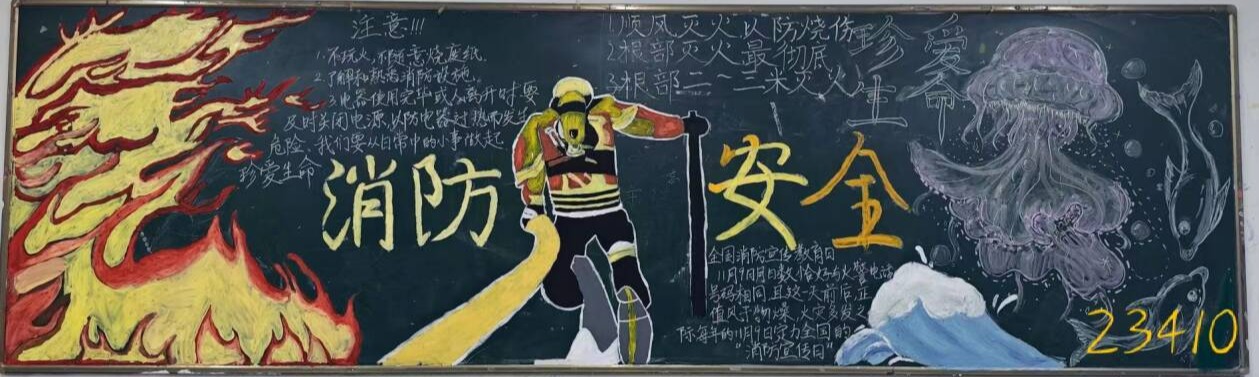 注意!!!
1.不玩火,不随意烧废纸.
2.了解和熟悉消防设施.
3.电器使用完毕或人离开时要
及时关闭电源,以防电器过热而发生
危险,我们要从日常中的小事做起
珍爱生命
1.顺风灭火以防烧伤
2.根部灭火最彻底
3.根部二~三米灭火
珍爱
生命
消防 安全
全国消防宣传教育日
11月9日月日数恰好与火警电话
号码相同且这一天前后正
值风干物燥、火灾多发之
际每年的11月9日定为全国的
“消防宣传日”
23410